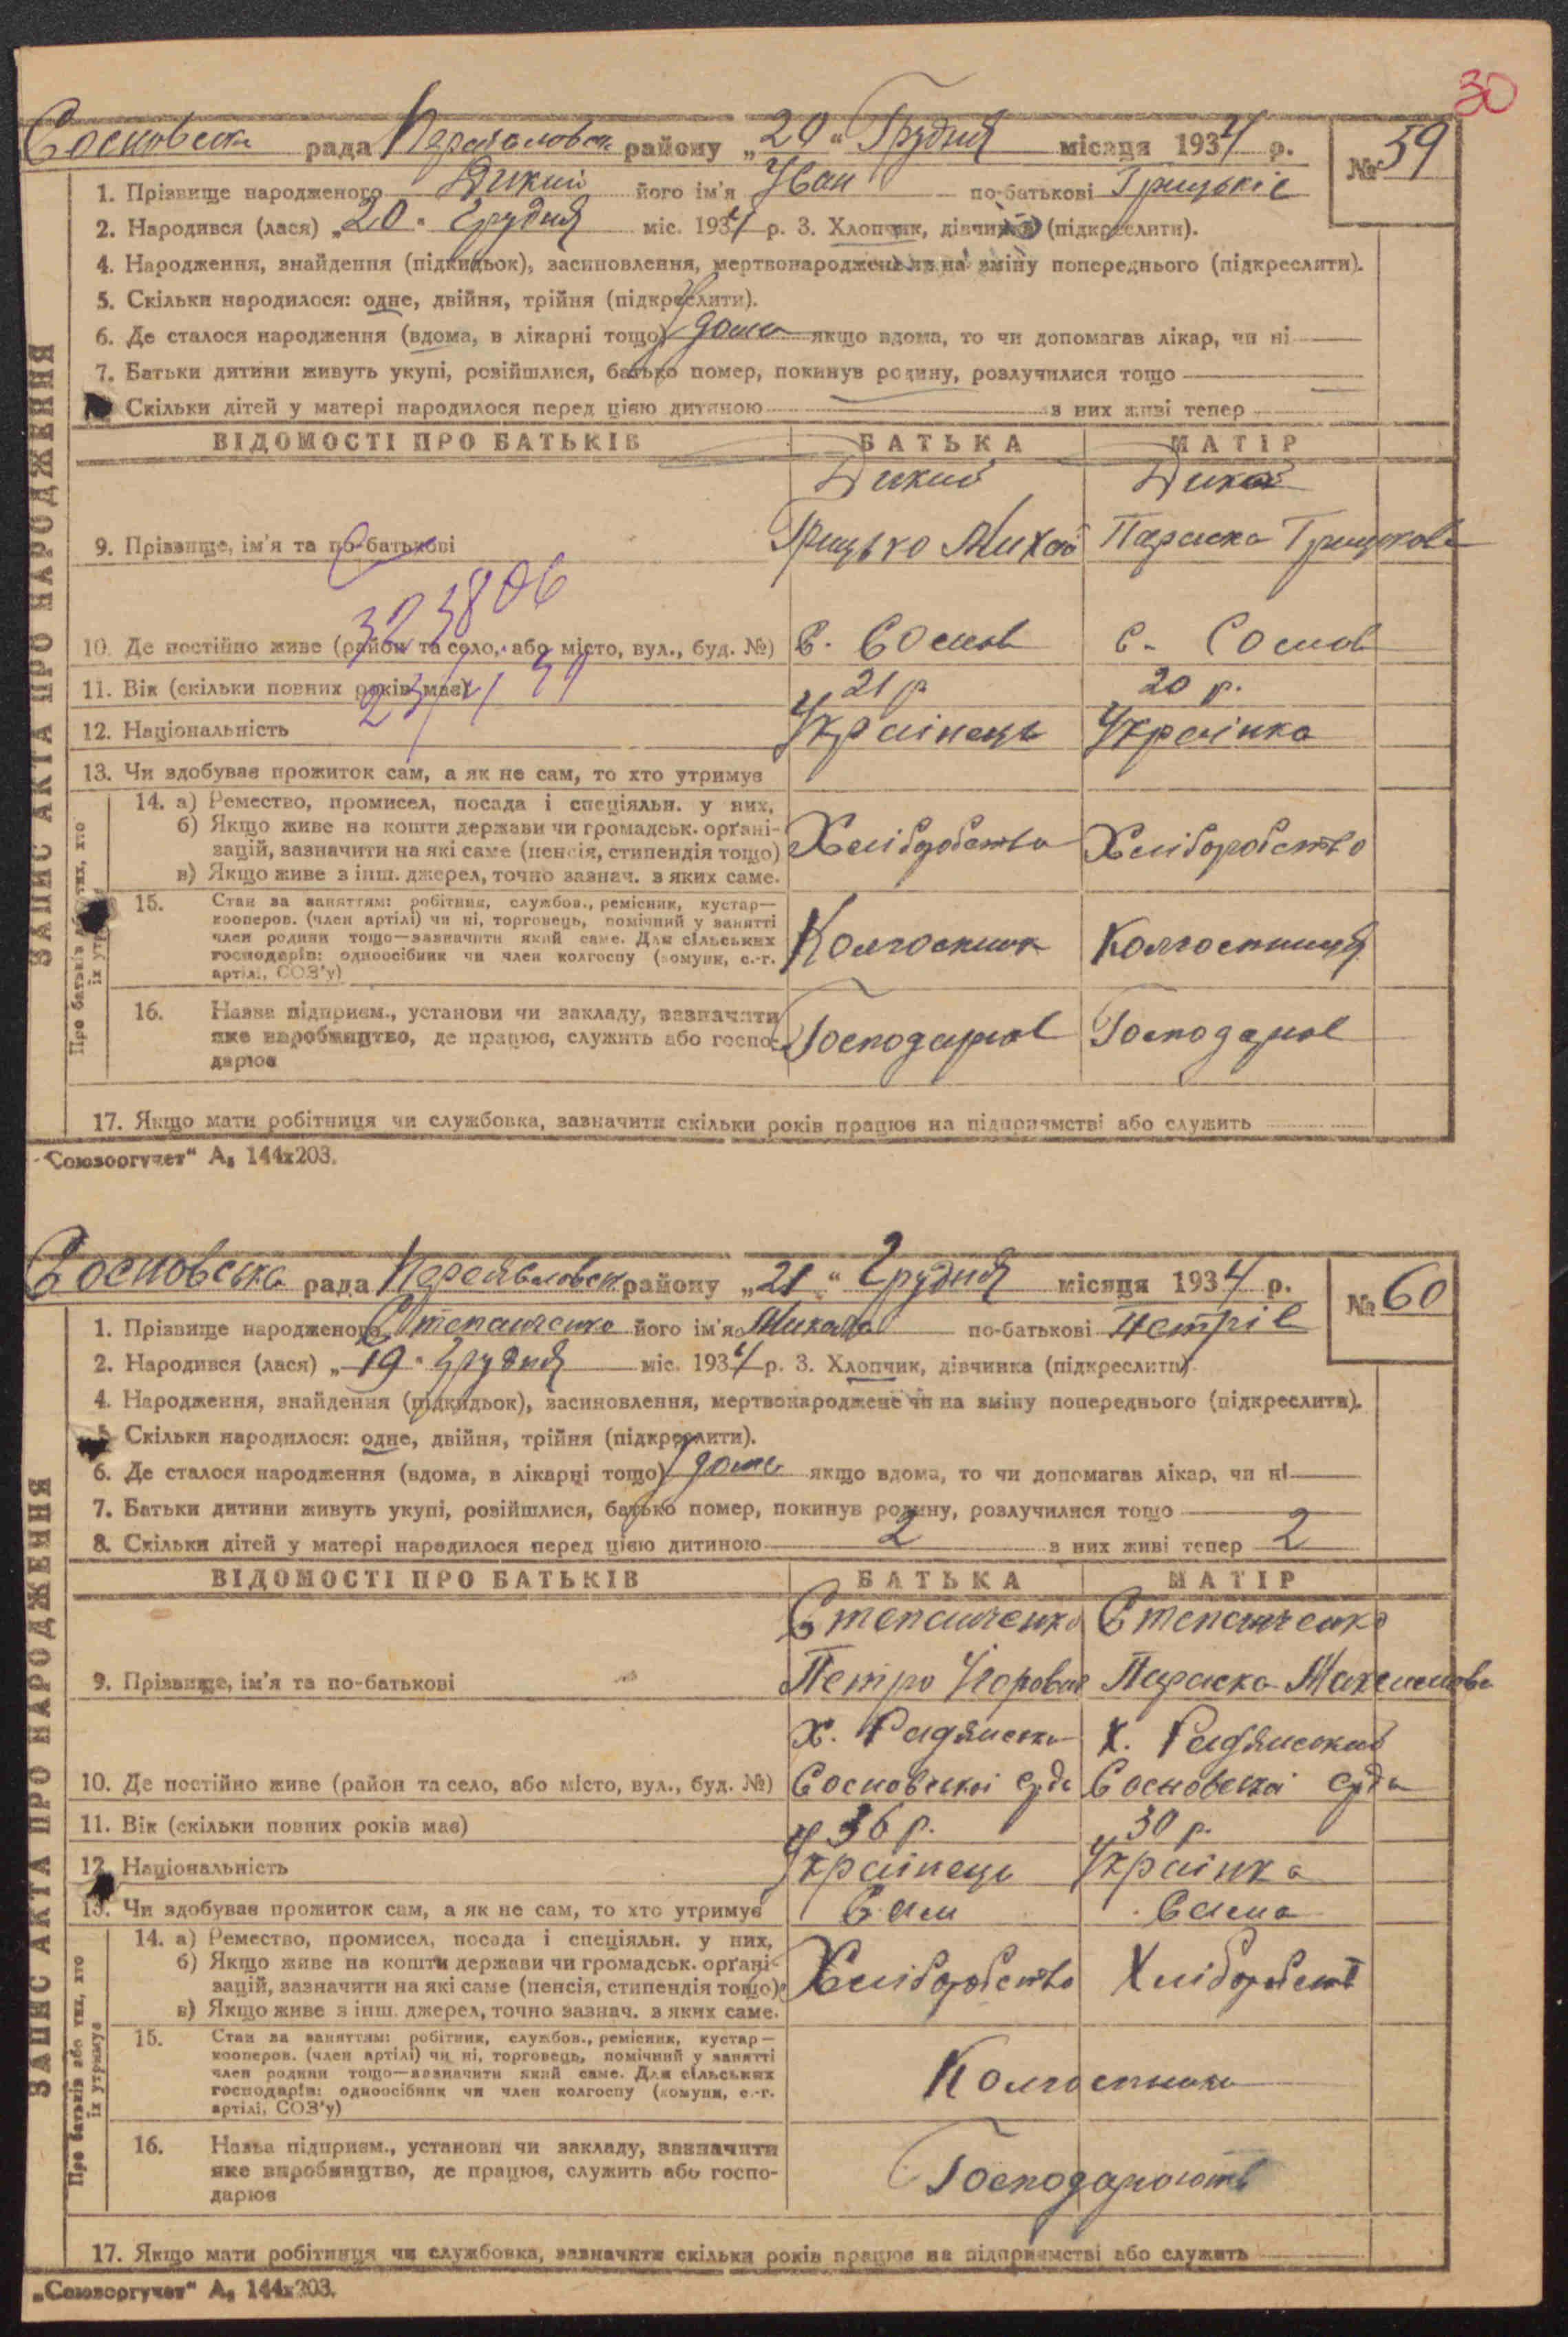 30
Сосновська рада Переяславськ району „20“ Грудня місяця 1934 р. № 59
1. Прізвище народженого Дикий його ім'я Іван по-батькові Грицьків
2. Народився (лася) „20“ Грудня міс. 1934 р. 3. Хлопчик, дівчинка (підкреслити).
4. Народження, знайдення (підкидьок), засиновлення, мертвонароджене чи на зміну попереднього (підкреслити).
5. Скільки народилося: одне, двійня, трійня (підкреслити).
6. Де сталося народження (вдома, в лікарні тощо) дома якщо вдома, то чи допомагав лікар, чи ні
7. Батьки дитини живуть укупі, розійшлися, батько помер, покинув родину, розлучилися тощо
Скільки дітей у матері народилося перед цією дитиною з них живі тепер
ВІДОМОСТІ ПРО БАТЬКІВ БАТЬКА МАТІР
Дикий Дика
9. Прізвище, ім'я та по-батькові Грицько Михай Параска Грицькова
323806
10. Де постійно живе (район та село, або місто, вул., буд. №) с. Соснов с. Соснов
11. Вік (скільки повних років має) 21 р 20 р.
12. Національність Українець Українка
13. Чи здобуває прожиток сам, а як не сам, то хто утримує
14. а) Ремество, промисел, посада і спеціяльн. у них,
б) Якщо живе на кошти держави чи громадськ. органі-
зацій, зазначити на які саме (пенсія, стипендія тощо) Хліборобство Хліборобство
в) Якщо живе з інш. джерел, точно зазнач. з яких саме.
15. Стан за заняттям: робітник, службов., ремісник, кустар—
кооперов. (член артілі) чи ні, торговець, помічний у занятті
член родини тощо—зазначити який саме. Для сільських
господарів: одноосібник чи член колгоспу (комуни, с.-г.
артілі, СОЗ'у) Колгоспник Колгоспниця
16. Назва підприєм., установи чи закладу, зазначити
яке виробництво, де працює, служить або госпо-
дарює Господарює Господарює
17. Якщо мати робітниця чи службовка, зазначити скільки років працює на підприємстві або служить
ЗАПИС АКТА ПРО НАРОДЖЕННЯ
Про батьків або тих, хто
їх утримує
„Союзоргучет“ А₅ 144х203.
Сосновська рада Переяславськ району „21“ Грудня місяця 1934 р. № 60
1. Прізвище народженого Степанченко його ім'я Микола по-батькові Петрів
2. Народився (лася) „19“ Грудня міс. 1934 р. 3. Хлопчик, дівчинка (підкреслити)
4. Народження, знайдення (підкидьок), засиновлення, мертвонароджене чи на зміну попереднього (підкреслити).
5 Скільки народилося: одне, двійня, трійня (підкреслити).
6. Де сталося народження (вдома, в лікарні тощо) дома якщо вдома, то чи допомагав лікар, чи ні
7. Батьки дитини живуть укупі, розійшлися, батько помер, покинув родину, розлучилися тощо
8. Скільки дітей у матері народилося перед цією дитиною 2 з них живі тепер 2
ВІДОМОСТІ ПРО БАТЬКІВ БАТЬКА МАТІР
Степанченко Степанченко
9. Прізвище, ім'я та по-батькові Петро Параска Максимова
х. Радянськ х. Радянський
10. Де постійно живе (район та село, або місто, вул., буд. №) Сосновської с/ради Сосновської с/ради
11. Вік (скільки повних років має) 36 р. 30 р.
12. Національність Українець Українка
13. Чи здобуває прожиток сам, а як не сам, то хто утримує Сам Сама
14. а) Ремество, промисел, посада і спеціяльн. у них,
б) Якщо живе на кошти держави чи громадськ. органі-
зацій, зазначити на які саме (пенсія, стипендія тощо) Хліборобство Хліборобств
в) Якщо живе з інш. джерел, точно зазнач. з яких саме.
15. Стан за заняттям: робітник, службов., ремісник, кустар—
кооперов. (член артілі) чи ні, торговець, помічний у занятті
член родини тощо—зазначити який саме. Для сільських
господарів: одноосібник чи член колгоспу (комуни, с.-г.
артілі, СОЗ'у) Колгоспники
16. Назва підприєм., установи чи закладу, зазначити
яке виробництво, де працює, служить або госпо-
дарює Господарюють
17. Якщо мати робітниця чи службовка, зазначити скільки років працює на підприємстві або служить
ЗАПИС АКТА ПРО НАРОДЖЕННЯ
Про батьків або тих, хто
їх утримує
„Союзоргучет“ А₅ 144х203.